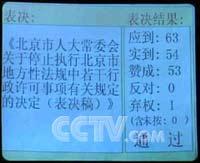 表决:
《北京市人大常委会
关于停止执行北京市
地方性法规中若干行
政许可事项有关规定
的决定(表决稿)》
表决结果:
应到: 63
实到: 54
赞成: 53
反对: 0
弃权: 1
(含未按: 0)
通 过
CCTV.com